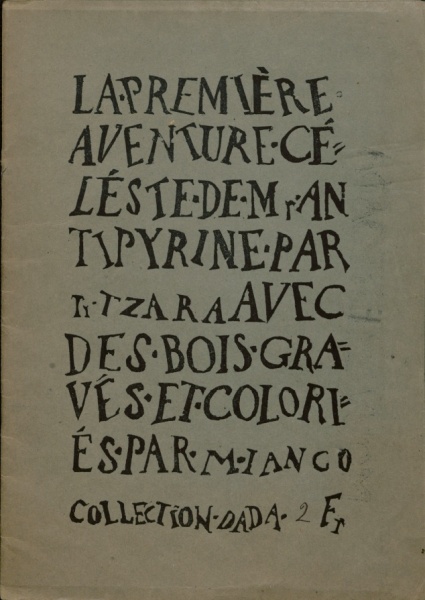 LA·PREMIÈRE=
AVENTURE·CÉ=
LÉSTE·DE·Mr·AN
TIPYRINE·PAR
Tr·TZARA AVEC
DES·BOIS·GRA=
VÉS·ET·COLORI=
ÉS·PAR·M·IANCO
COLLECTION·DADA· 2 Fr